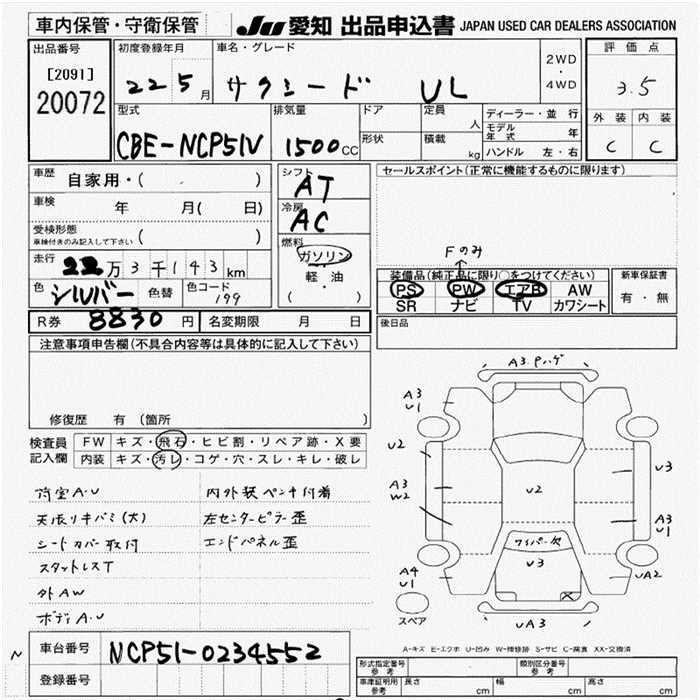 車内保管・守衛保管
JU 愛知 出品申込書 JAPAN USED CAR DEALERS ASSOCIATION
出品番号
[2091]
20072
初度登録年月
22 5月
車名・グレード
サクシード UL
2WD
・
4WD
評価点
3.5
外装 内装
C C
型式
CBE-NCP51V
排気量
1500cc
ドア
形状
定員
人
積載
kg
ディーラー・並行
モデル年式 年
ハンドル 左・右
車歴 自家用・( )
車検 年 月( 日)
受検形態
車検付きのみ記入して下さい ( )
走行 22万3千143km
色 シルバー 色替 色コード 199
R券 8830円 名変期限 月 日
シフト AT
冷房 AC
燃料
ガソリン
・
軽油
( )
セールスポイント(正常に機能するものに限ります)
Fのみ
装備品(純正品に限り○をつけてください)
PS PW エアB AW
SR ナビ TV カワシート
新車保証書
有・無
後日品
注意事項申告欄(不具合内容等は具体的に記入して下さい)
修復歴 有(箇所 )
検査員記入欄
FW キズ・飛石・ヒビ割・リペア跡・X要
内装 キズ・汚レ・コゲ・穴・スレ・キレ・破レ
荷室A・U
天張リキバミ(大)
シートカバー取付
スタットレスT
外AW
ボディA・U
内外装ペンキ付着
左センターピラー歪
エンドパネル歪
A3.Pハゲ
A3
U1
U2
A3
W2
A4
U1
U2
U3
A3
U1
ワイパー欠
U3
X
UA2
UA3
スペア
A-キズ E-エクボ U-凹み W-補修跡 S-サビ C-腐食 XX-交換済
車台番号 NCP51-0234552
登録番号
型式指定番号 参考
類別区分番号 参考
車庫証明用 参考 長さ cm 幅 cm 高さ cm